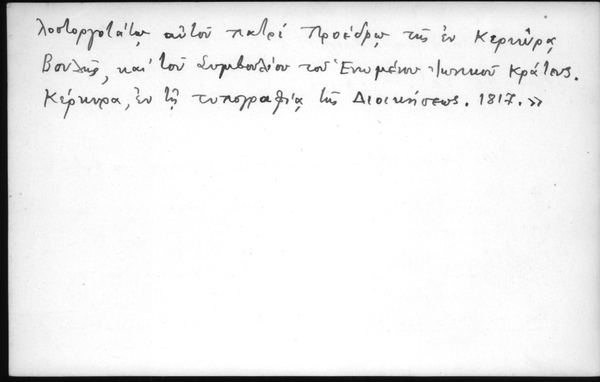 λοστοργοτάτῳ αὐτοῦ πατρί Προέδρῳ τῆς ἐν Κερκύρᾳ
Βουλῆς, καί τοῦ Συμβουλίου τοῦ Ἑνωμένου Ἰωνικοῦ Κράτους.
Κέρκυρα, ἐν τῇ τυπογραφίᾳ τῆς Διοικήσεως. 1817.»